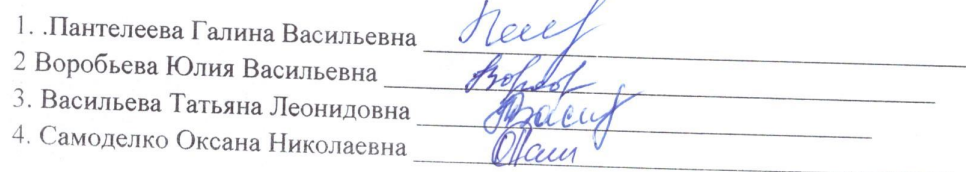 1. .Пантелеева Галина Васильевна
2 Воробьева Юлия Васильевна
3. Васильева Татьяна Леонидовна
4. Самоделко Оксана Николаевна